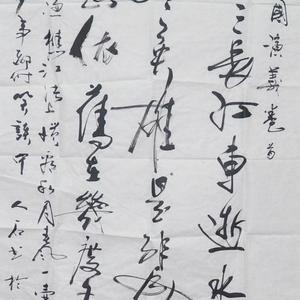 國演義卷首
長江東逝水
英雄是非成
依舊在幾度夕
漁樵江渚上慣看秋月春風一壺
事都付笑談中 書於